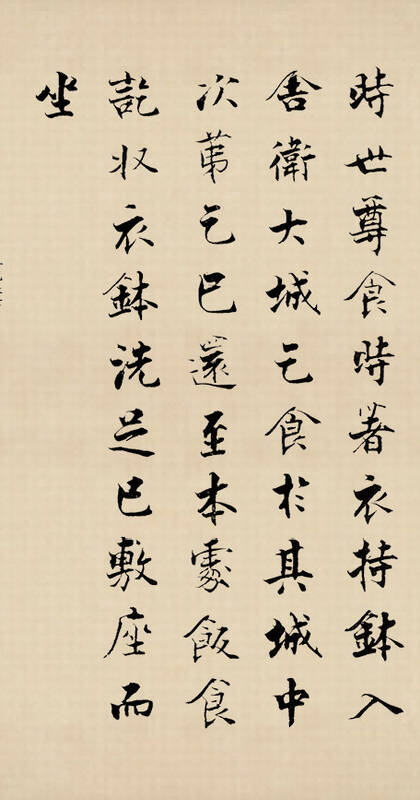 時世尊食時著衣持鉢入
舍衛大城乞食於其城中
次第乞已還至本處飯食
訖收衣鉢洗足已敷座而
坐